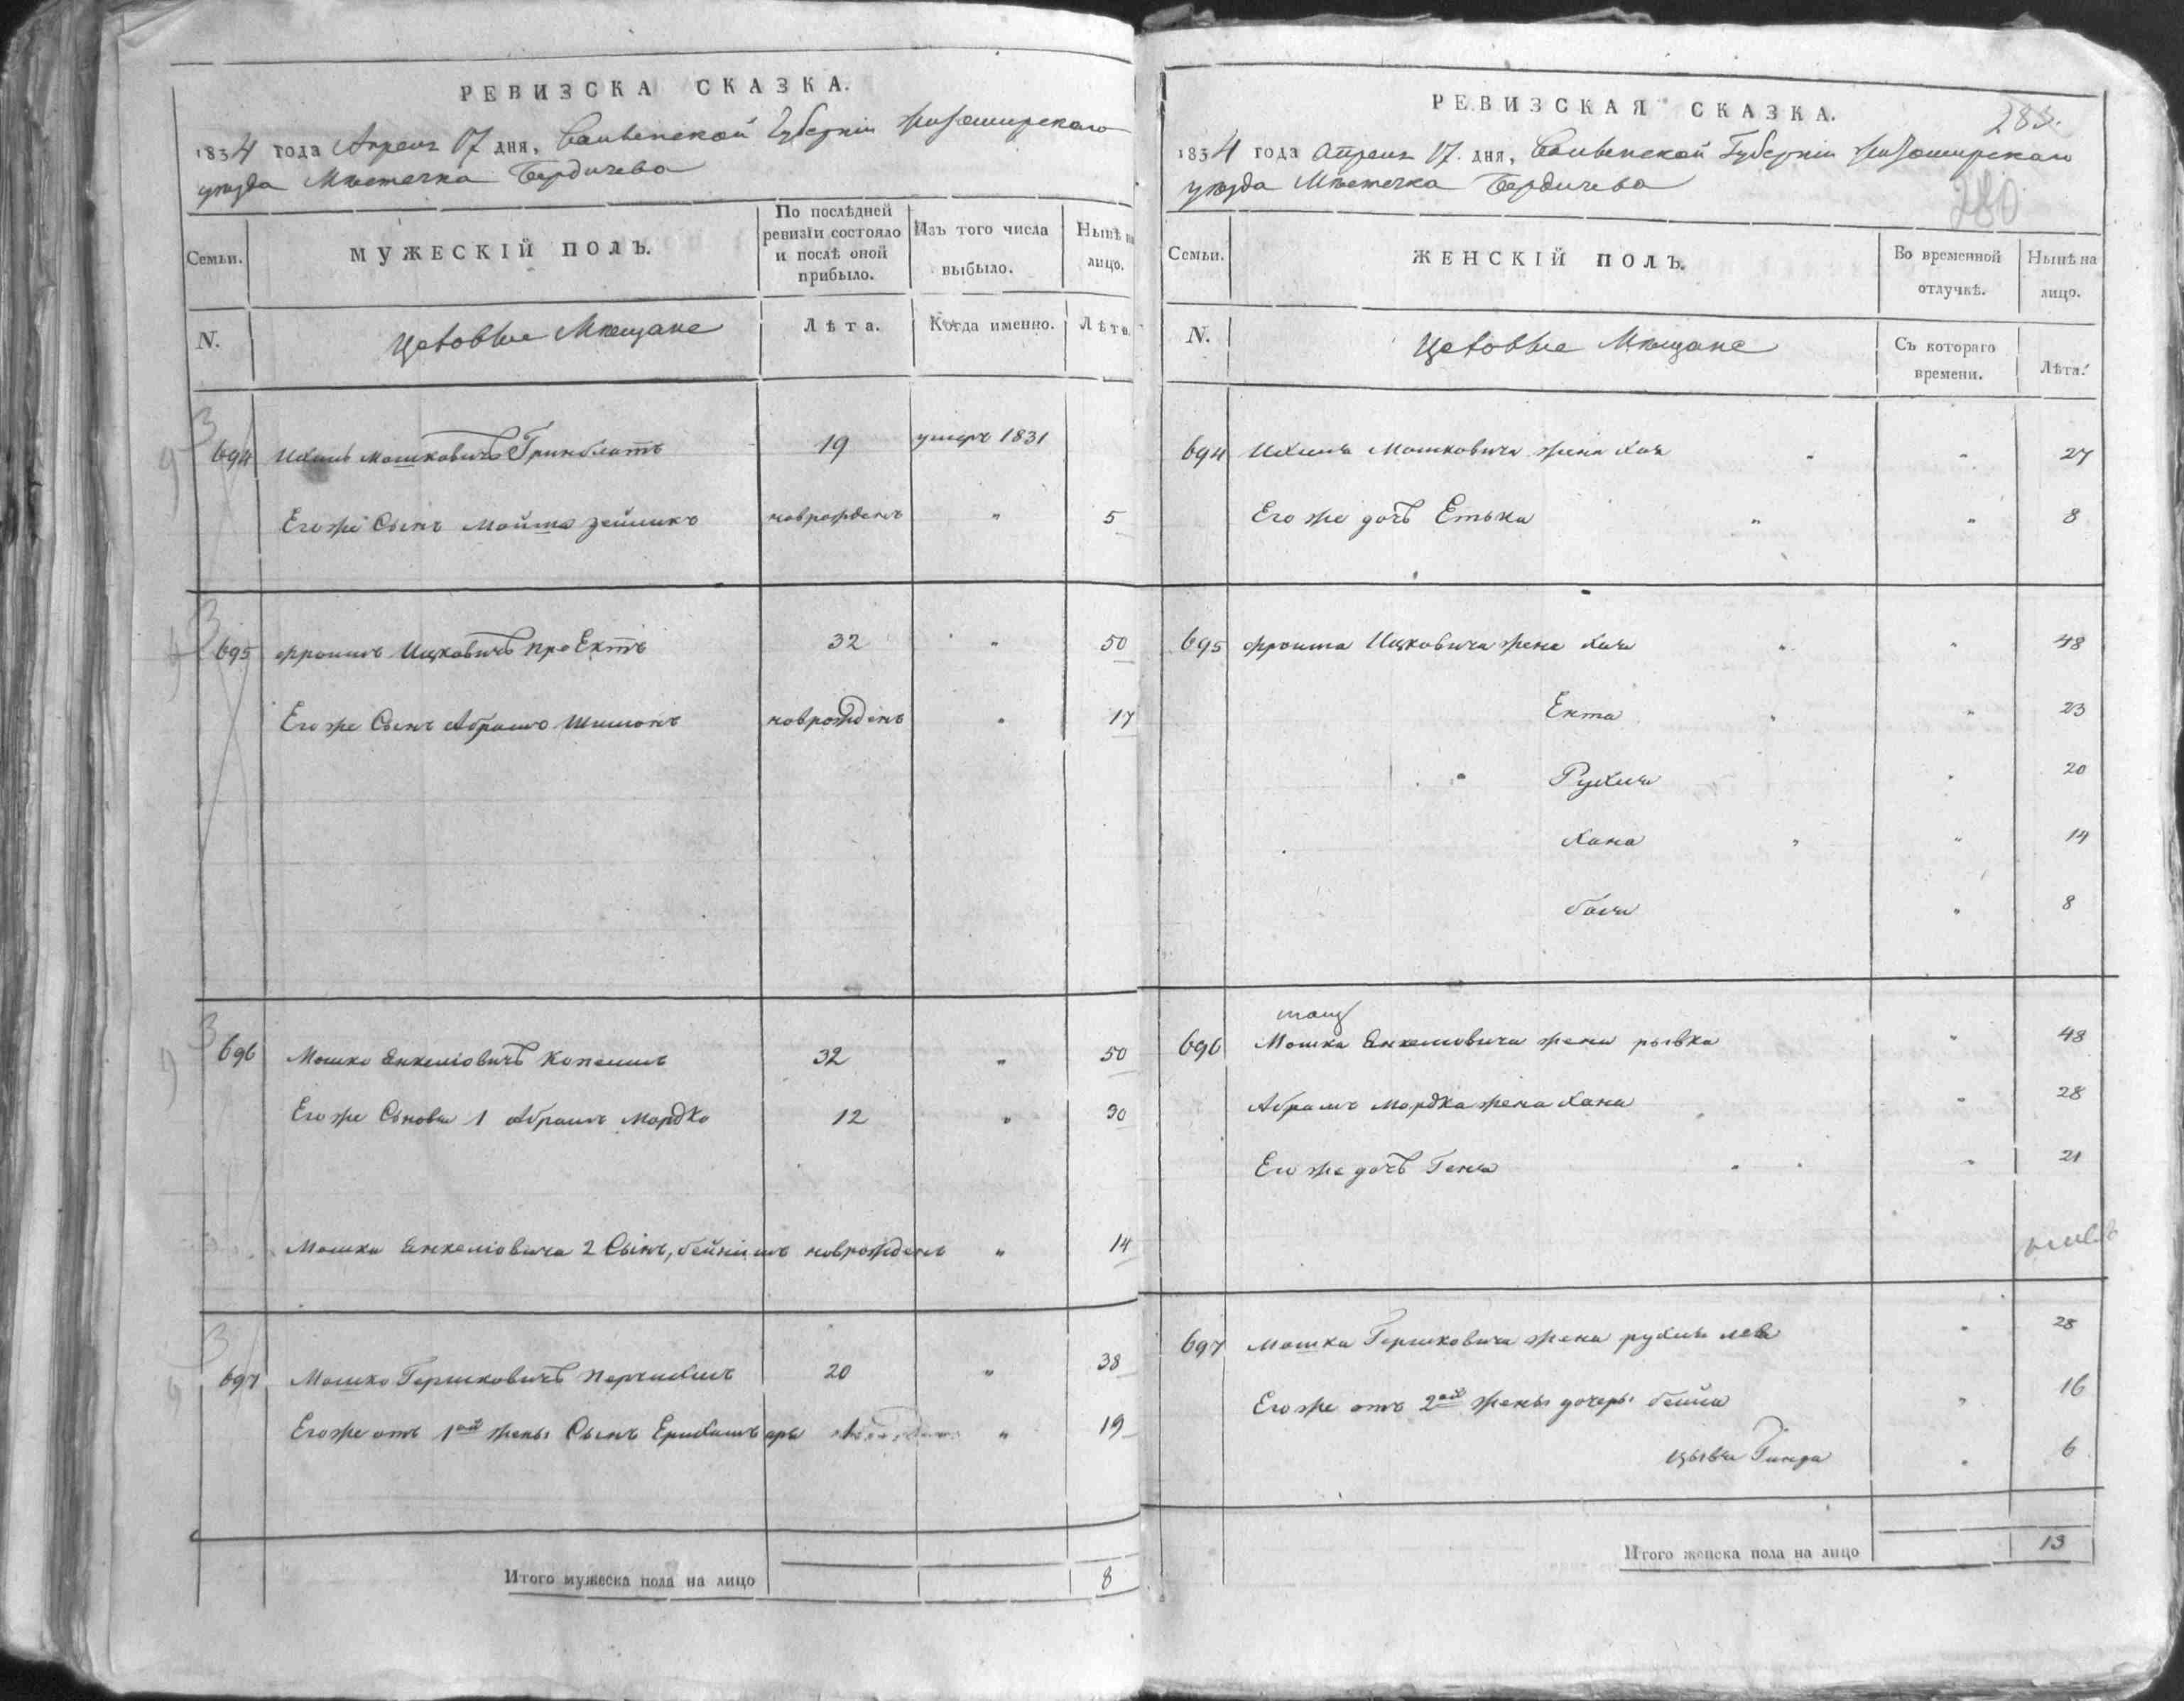 РЕВИЗСКА СКАЗКА.
1834 года Апреля 17 дня, Волынской Губерніи Житомирскаго
уезда Местечка Бердичева
Семьи.
МУЖЕСКІЙ ПОЛЪ.
По послѣдней ревизіи состояло и послѣ оной прибыло.
Изъ того числа выбыло.
Нынѣ на лицо.
N.
Цеховые Мещане
Лѣта.
Когда именно.
Лѣта
694 Ихиль Мошковичъ Гринблатъ 19 умеръ 1831
Его же Сынъ Мойша Зейликъ новрожденъ " 5
695 Фроимъ Ицковичъ 32 " 50
Его же Сынъ Абрамъ Шимонъ новрожденъ " 17
696 Мошко Енкеліовичъ 32 " 50
Его же Сыновья 1 Абрамъ Мордко 12 " 30
Мошка Енкеліовича 2 Сынъ, бейнишъ новрожденъ " 14
697 Мошко Гершковичъ 20 " 38
Его же отъ 1ой жены Сынъ 1 " 19
Итого мужеска пола на лицо 8
РЕВИЗСКАЯ СКАЗКА.
283.
280
1834 года Апреля 17. дня, Волынской Губерніи Житомирскаго
уезда Местечка Бердичева
Семьи.
ЖЕНСКІЙ ПОЛЪ.
Во временной отлучкѣ.
Нынѣ на лицо.
N.
Цеховые Мещане
Съ котораго времени.
Лѣта.
694 Ихиля Мошковича жена Хая " 27
Его же дочь Етька " 8
695 Фроима Ицковича жена Хая " 48
Ента " 23
Рухля " 20
Хана " 14
бася " 8
696 Мошка Енкеліовича жена рывка " 48
Абрамъ Мордка жена Хана " 28
Его же дочь Геня " 21
697 Мошка Гершковича жена рухля лея " 28
Его же отъ 2ой жены дочери бейла " 16
Цывья Гинда " 6
Итого женска пола на лицо 13